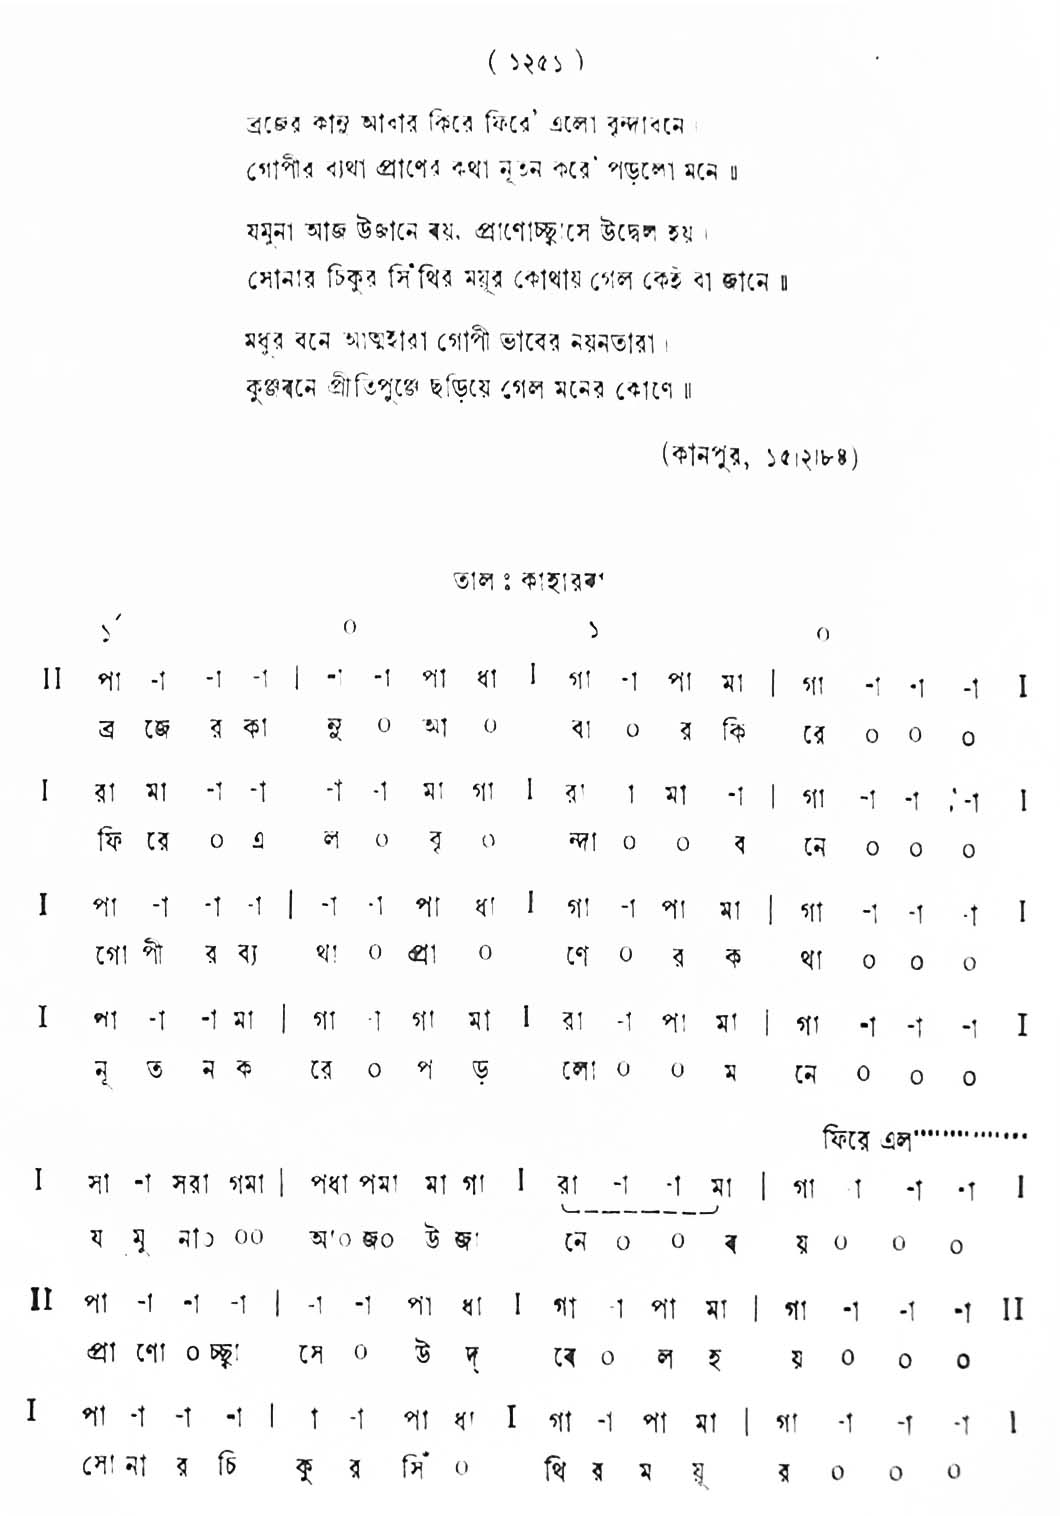 ( ১২৫১ )
ব্রজের কানু আবার কিরে ফিরে' এলো বৃন্দাবনে।
গোপীর ব্যথা প্রাণের কথা নূতন করে' পড়লো মনে॥
যমুনা আজ উজানে ৰয়, প্রাণোচ্ছ্বাসে উদ্বেল হয়।
সোনার চিকুর সিঁথির ময়ূর কোথায় গেল কেই বা জানে॥
মধুর বনে আত্মহারা গোপী ভাবের নয়নতারা।
কুঞ্জৰনে প্রীতিপুঞ্জে ছড়িয়ে গেল মনের কোণে॥
(কানপুর, ১৫।২।৮৪)
তাল ঃ কাহারৰা
১´ ০ ১ ০
II পা -া -া -া | -া -া পা ধা I গা -া পা মা | গা -া -া -া I
ব্র জে র কা নু ০ আ ০ বা ০ র কি রে ০ ০ ০
I রা মা -া -া -া -া মা গা I রা া মা -া | গা -া -া -া I
ফি রে ০ এ ল ০ বৃ ০ ন্দা ০ ০ ব নে ০ ০ ০
I পা -া -া -া | -া -া পা ধা I গা -া পা মা | গা -া -া -া I
গো পী র ব্য থা ০ প্রা ০ ণে ০ র ক থা ০ ০ ০
I পা -া -া মা | গা -া গা মা I রা -া পা মা | গা -া -া -া I
নূ ত ন ক রে ০ প ড় লো ০ ০ ম নে ০ ০ ০
ফিরে এল...............
I সা -া সরা গমা | পধা পমা মা গা I রা -া -া মা | গা া -া -া I
য মু না০ ০০ আ০ জ০ উ জা নে ০ ০ ৰ য় ০ ০ ০
II পা -া -া -া | -া -া পা ধা I গা -া পা মা | গা -া -া -া II
প্রা ণো ০ চ্ছ্বা সে ০ উ দ্ ৰে ০ ল হ য় ০ ০ ০
I পা -া -া -া | া -া পা ধা I গা -া পা মা | গা -া -া -া I
সো না র চি কু র সিঁ ০ থি র ম য়ূ র ০ ০ ০